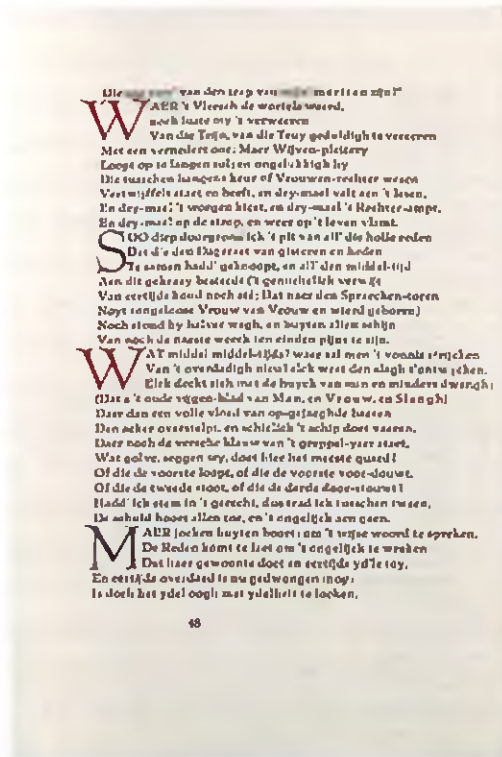 Die van den trap van mertten zijn?"
WAER 't Vleesch de wortels weerd,
noch luste my 't verweeren
Van die Teijn, van die Tuy geduldigh te vereeren
Met een vernedert oor: Maer Wijven-pleitery
Loopt op te langen rols en ongelukkigh by
Die tusschen hangens keur of Vrouwen-rechter wesen
Vertwijffelt staet en beeft, en dry-mael valt aen 't lesen,
En dry-mael 't worgen kiest, en dry-mael 't Rechter-ampt,
En dry-mael op de strop, en weer op 't leven vlamt.
SOO diep doorgroen ick 't pit van all' die holle reden
Dat d'e den Dageraet van gisteren en heden
Te samen hadd' geknoopt, en all' den middel-tijd
Aen dit gekraey besteedt ('t genuchelick verwijt
Van eertijds houd noch sté; Dat naer den Spraecken-toren
Noyt tongeloose Vrouw van Vrouw en wierd geboren)
Noch stond by halver wegh, en buyten allen schijn
Van noch de naeste weeck ten eynden pijns te zijn.
WAT middel middel-tijds? waer sal men 't vonnis strijcken
Van 't overdadigh nieus? elck weet den slagh t'ontwijcken.
Elck deckt sich met de huyck van min en minders dwangh;
(Dat's 't oude vijgen-blad van Man, en Vrouw, en Slangh)
Daer dan een volle vloed van op-gejaeghde baeren
Den acker overstelpt, en schielick 't schip doet vaeren,
Daer noch de versche klauw van 't greppel-yser staet,
Wat golve, seggen sy, doet hier het meeste quaed?
Of die de voorste loopt, of die de voorste voor-douwt,
Of die de tweede stoot, of die de darde door-stouwt?
Hadd' ick stem in 't gerecht, dus trad ick tusschen tween,
De schuld hoort allen toe, en 't ongelijck aen geen.
MAER jocken buyten boert; om 't wijse woord te spreken,
De Reden komt te laet om 't ongelijck te wreken
Dat haer gewoonte doet en eertijds yd'le toy,
En eertijds overdaed is nu gedwongen moy:
Is doch het ydel oogh met ydelheit te locken,
48